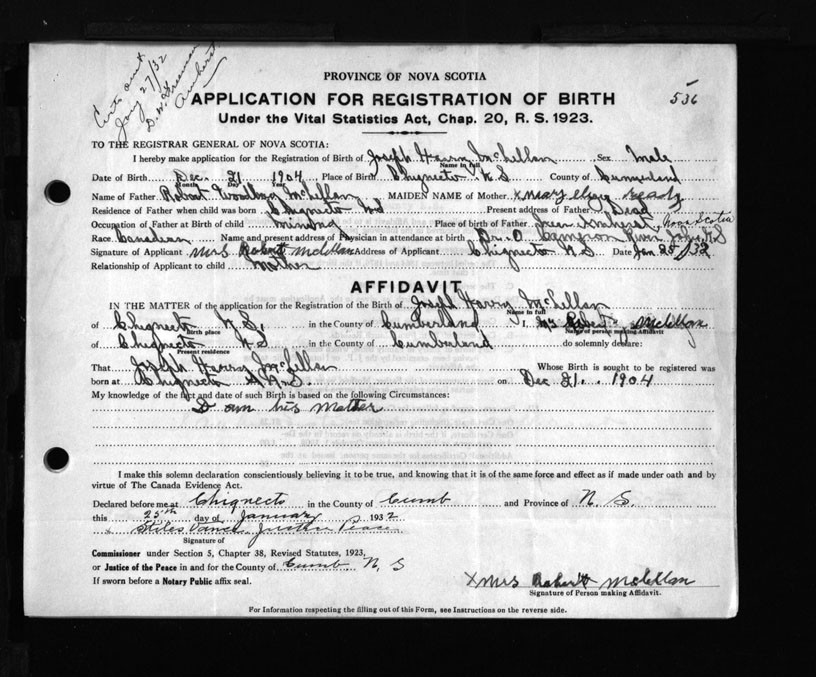 Jany 27/32
Amherst
PROVINCE OF NOVA SCOTIA
APPLICATION FOR REGISTRATION OF BIRTH 536
Under the Vital Statistics Act, Chap. 20, R. S. 1923.
TO THE REGISTRAR GENERAL OF NOVA SCOTIA:
I hereby make application for the Registration of Birth of Joseph Harry McLellan Sex Male
Name in full
Date of Birth Dec. 21 1904 Place of Birth Chignecto N.S County of Cumberland
Month Day Year
Name of Father Robert McLellan MAIDEN NAME of Mother x Mary
Residence of Father when child was born Chignecto Present address of Father Dead
Occupation of Father at Birth of child mining Place of birth of Father Nova Scotia
Race Canadian Name and present address of Physician in attendance at birth Dr. Cameron River N.S
Signature of Applicant Mrs Robert McLellan Address of Applicant Chignecto N.S Date Jan 25/32
Relationship of Applicant to child Mother
AFFIDAVIT
IN THE MATTER of the application for the Registration of the Birth of Joseph Harry McLellan
Name in full
of Chignecto N.S. in the County of Cumberland I, Mrs Robert McLellan
Birth place Name of person making Affidavit
of Chignecto N.S in the County of Cumberland do solemnly declare:
Present residence
That Joseph Harry McLellan Whose Birth is sought to be registered was
born at Chignecto N.S. on Dec 21. 1904
My knowledge of the fact and date of such Birth is based on the following Circumstances:
I am his Mother
I make this solemn declaration conscientiously believing it to be true, and knowing that it is of the same force and effect as if made under oath and by
virtue of The Canada Evidence Act.
Declared before me at Chignecto in the County of Cumb and Province of N. S.
this 25th day of January 1932
x Stiles Justice Peace
Signature of
Commissioner under Section 5, Chapter 38, Revised Statutes, 1923,
or Justice of the Peace in and for the County of Cumb. N. S
If sworn before a Notary Public affix seal.
x Mrs Robert McLellan
Signature of Person making Affidavit.
For Information respecting the filling out of this Form, see Instructions on the reverse side.